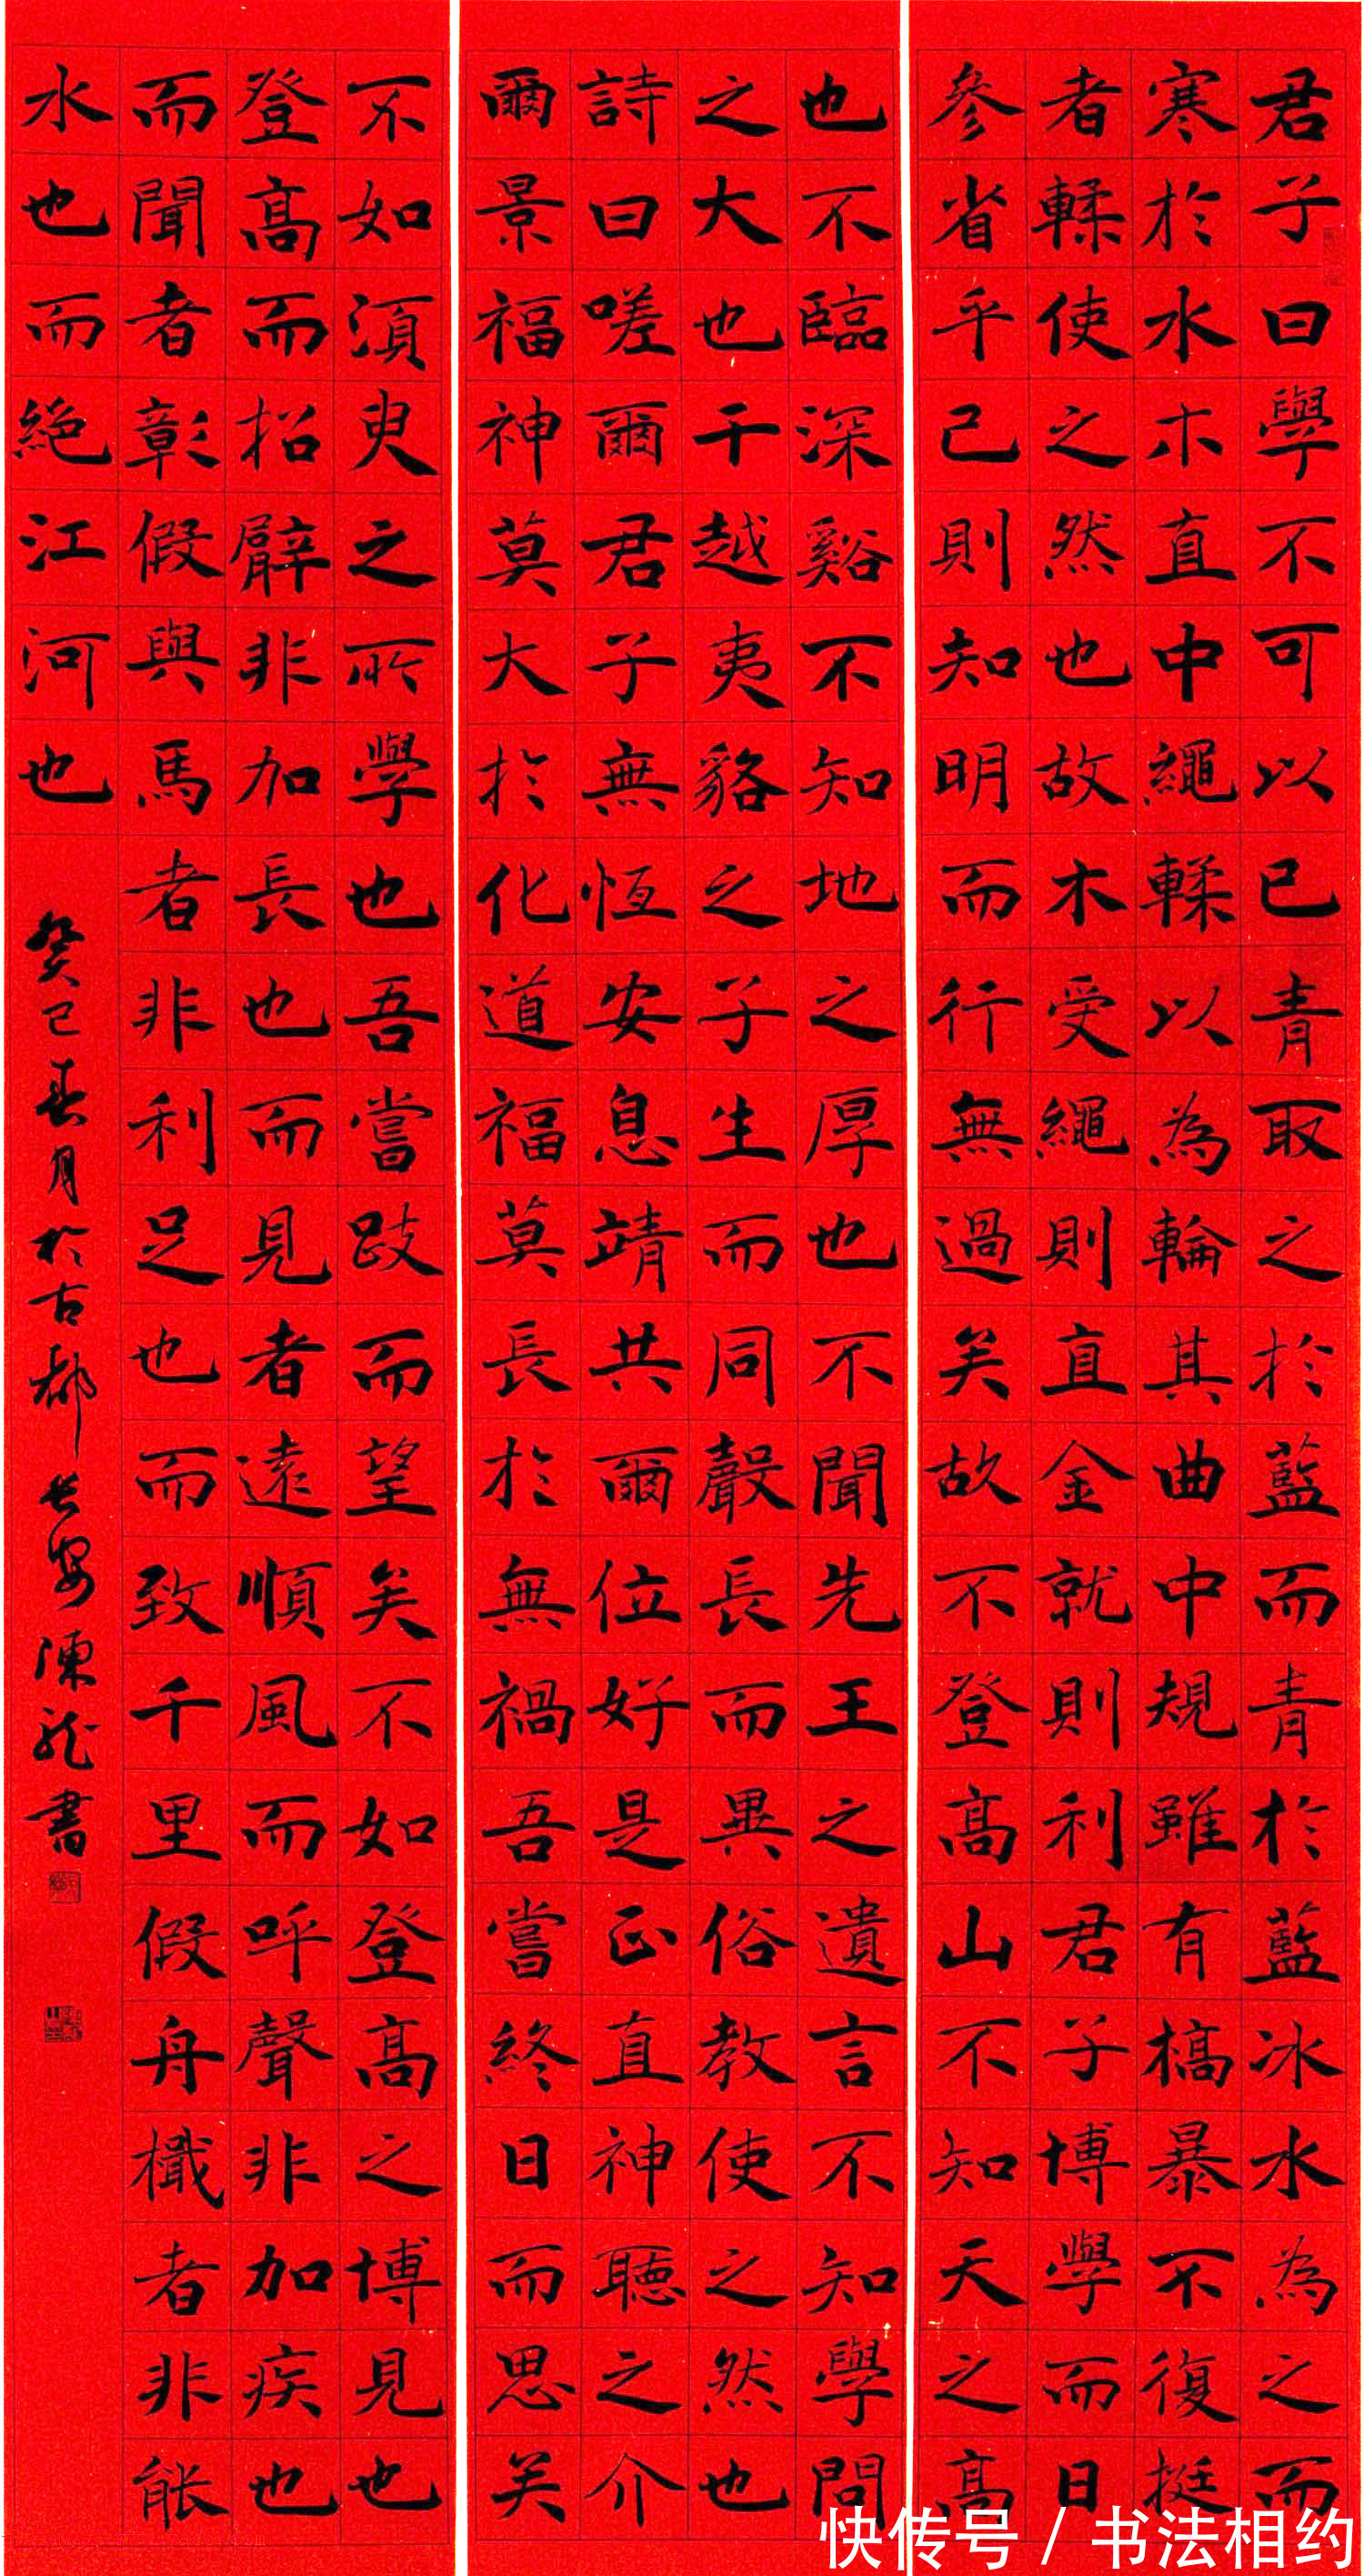 君子曰學不可以已青取之於藍而青於藍冰水為之而
寒於水木直中繩輮以為輪其曲中規雖有槁暴不復挺
者輮使之然也故木受繩則直金就則利君子博學而日
參省乎己則知明而行無過矣故不登高山不知天之高
也不臨深谿不知地之厚也不聞先王之遺言不知學問
之大也干越夷貉之子生而同聲長而異俗教使之然也
詩曰嗟爾君子無恆安息靖共爾位好是正直神聽之介
爾景福神莫大於化道福莫長於無禍吾嘗終日而思矣
不如須臾之所學也吾嘗跂而望矣不如登高之博見也
登高而招臂非加長也而見者遠順風而呼聲非加疾也
而聞者彰假與馬者非利足也而致千里假舟檝者非能
水也而絕江河也
癸巳春月於古都長安陳龍書
快传号 / 书法相约